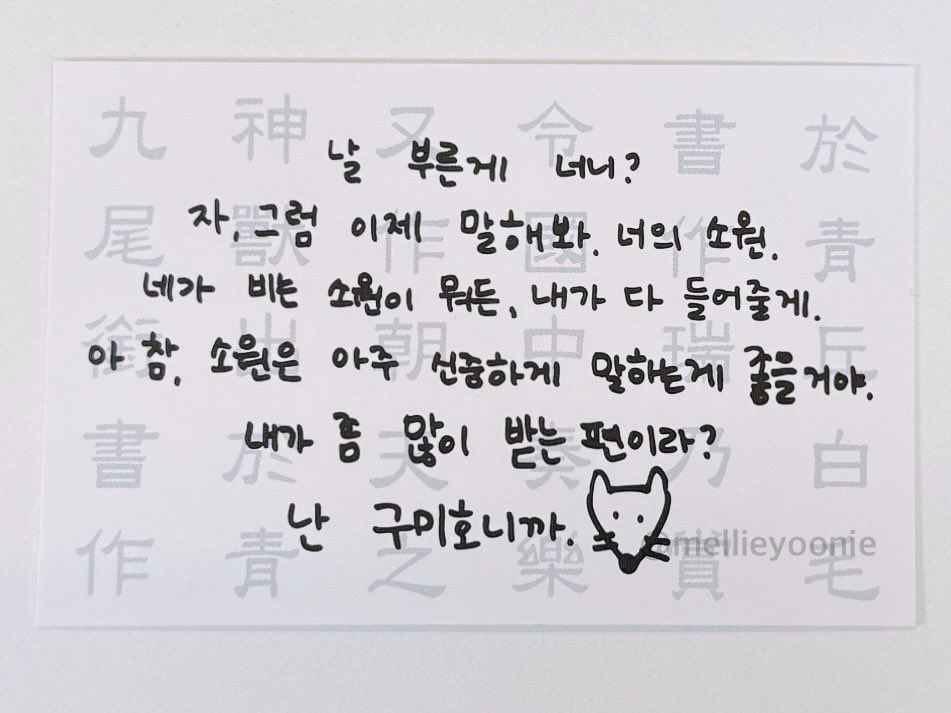 날 부른게 너니?
자, 그럼 이제 말해봐. 너의 소원.
네가 비는 소원이 뭐든, 내가 다 들어줄게.
아 참, 소원은 아주 신중하게 말하는게 좋을거야.
내가 좀 많이 받는 편이라?
난 구미호니까.
@mellieyoonie
九 神 又 令 書 於
尾 獸 作 國 作 青
銜 出 朝 中 瑞 丘
書 於 天 奏 乃 白
作 青 之 樂 毛